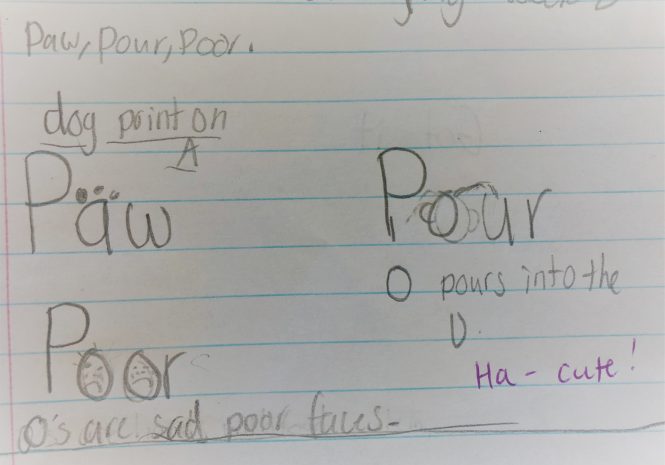 Paw, Pour, Poor.
dog print on
A
Paw
Pour
O pours into the
U.
Poor
Ha - cute!
O's are sad poor faces.